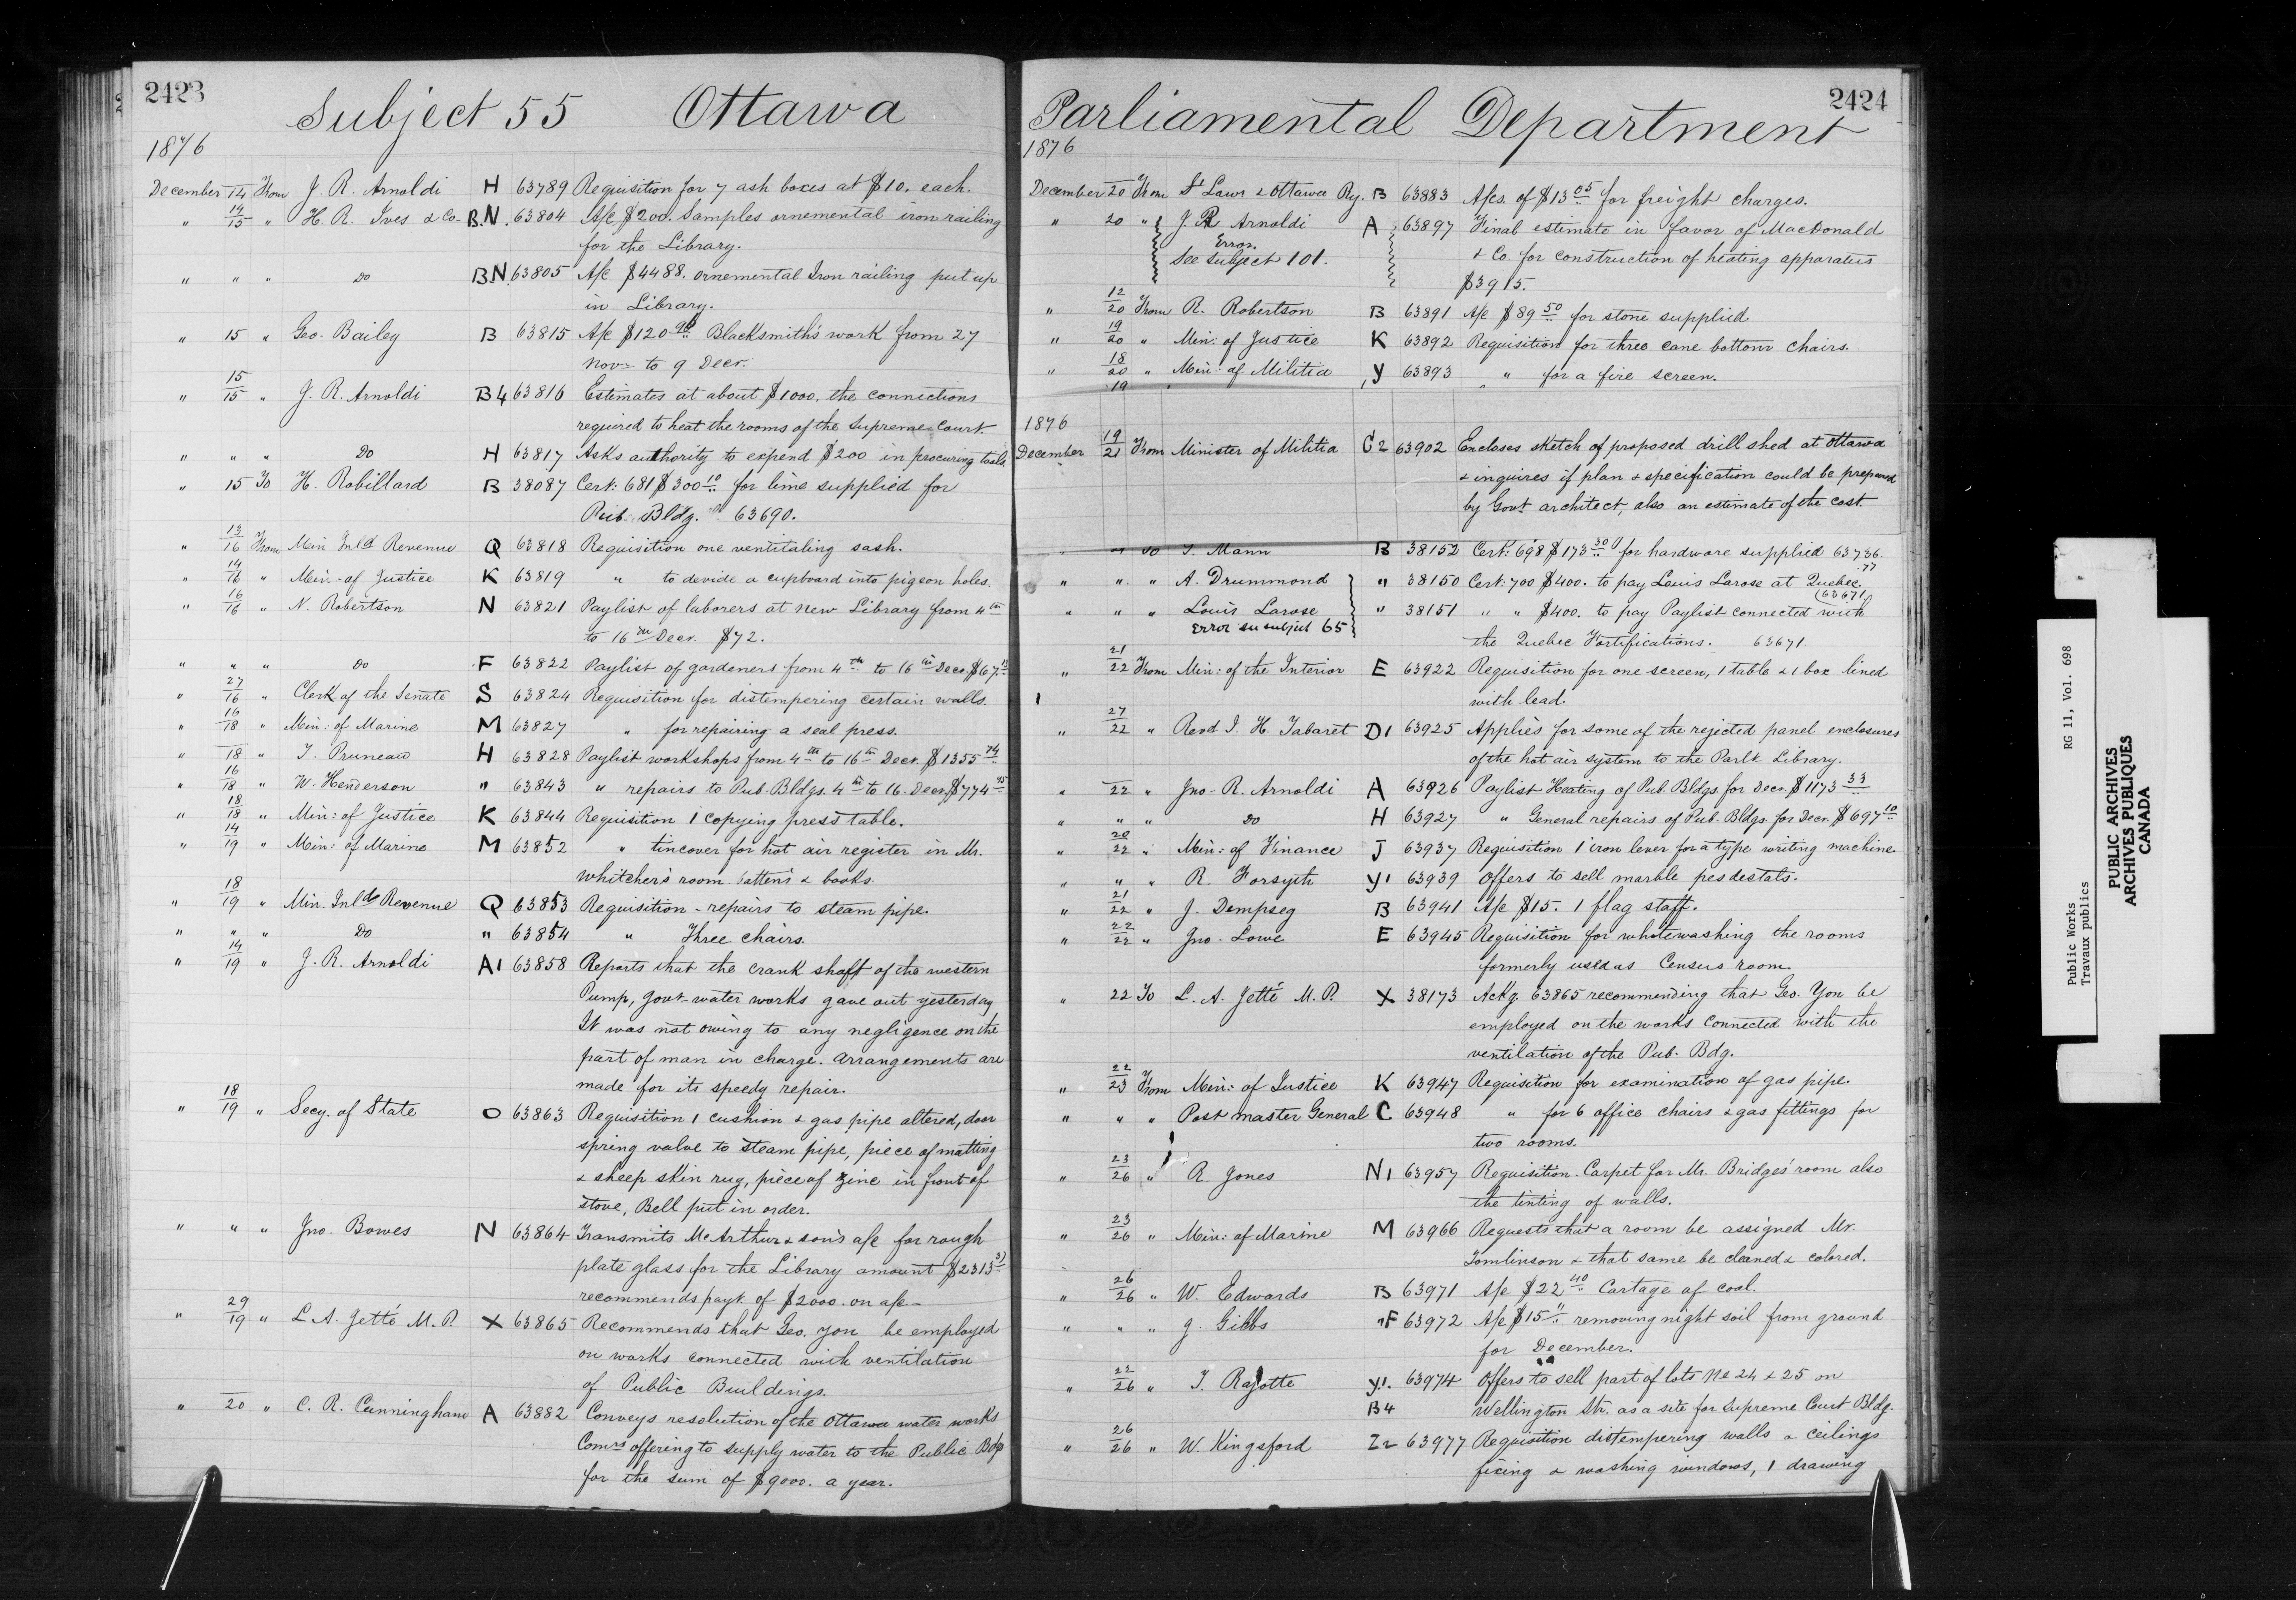 2423
Subject 55 Ottawa
1876
December 14 From J. R. Arnoldi H 63789 Requisition for 7 ash boxes at $10. each.
" 14/15 " H. R. Ives & Co. B.N. 63804 A/c $200. Samples ornemental iron railing
for the Library.
" " " Do B.N. 63805 A/c $4488. ornemental Iron railing put up
in Library.
" 15 " Geo. Bailey B 63815 A/c $120 90 Blacksmith's work from 27
Novr to 9 Decr.
" 15/15 " J. R. Arnoldi B4 63816 Estimates at about $1000. the connections
required to heat the rooms of the Supreme Court.
" " " Do H 63817 Asks authority to expend $200 in procuring tools
" 15 To H. Robillard B 38087 Cert: 681 $300 10 for lime supplied for
Pub. Bldg. 63690.
" 13/16 From Min Inld Revenue Q 63818 Requisition one ventitaling sash.
" 14/16 " Min. of Justice K 63819 " to devide a cupboard into pigeon holes.
" 16/16 " N. Robertson N 63821 Paylist of laborers at new Library from 4th
to 16th Decr. $72.
" " " Do F 63822 Paylist of gardeners from 4th to 16th Decr. $67.
" 27/16 " Clerk of the Senate S 63824 Requisition for distempering certain walls.
" 16/18 " Min: of Marine M 63827 " for repairing a seal press.
" 18 " T. Pruneau H 63828 Paylist workshops from 4th to 16th Decr. $1355 74
" 16/18 " W. Henderson " 63843 " repairs to Pub. Bldgs. 4th to 16. Decr. $774 75
" 18/18 " Min: of Justice K 63844 Requisition 1 copying press table.
" 14/19 " Min: of Marine M 63852 " tin cover for hot air register in Mr.
Whitcher's room battens & books.
" 18/19 " Min. Inld Revenue Q 63853 Requisition - repairs to steam pipe.
" " " Do " 63854 " Three chairs.
" 14/19 " J. R. Arnoldi A1 63858 Reports that the crank shaft of the western
Pump, Govt. water works gave out yesterday
It was not owing to any negligence on the
part of man in charge. Arrangements are
made for its speedy repair.
" 18/19 " Secy. of State O 63863 Requisition 1 cushion & gas pipe altered, door
spring value to steam pipe, piece of matting
& sheep skin rug, piece of zinc in front of
stove, Bell put in order.
" " " Jno. Bowes N 63864 Transmits McArthur & son's a/c for rough
plate glass for the Library amount $2313 31
recommends payt. of $2000. on a/c -
" 29/19 " L. A. Jetté M. P. X 63865 Recommends that Geo. Yon be employed
on works connected with ventilation
of Public Buildings.
" 20 " C. R. Cunningham A 63882 Conveys resolution of the Ottawa water works
Comrs offering to supply water to the Public Bdg
for the sum of $9000. a year.
2424
Parliamental Department
1876
December 20 From St Lawr & Ottawa Ry. B 63883 A/cs. of $13 05 for freight charges.
" 20 " J. R. Arnoldi A 63897 Final estimate in favor of MacDonald
Error.
See Subject 101. & Co. for construction of heating apparatus
$3915.
" 12/20 From R. Robertson B 63891 A/c $89 50 for stone supplied.
" 19/20 " Min: of Justice K 63892 Requisition for three cane bottom chairs.
" 18/20 " Min: of Militia Y 63893 " for a fire screen.
19
1876
December 19/21 From Minister of Militia C2 63902 Encloses sketch of proposed drill shed at Ottawa
& inquires if plan & specification could be prepared
by Govt architect, also an estimate of the cost.
" " To T. Mann B 38152 Cert: 698 $173 30 for hardware supplied 63736.
77
" " " A. Drummond " 38150 Cert: 700 $400. to pay Louis Larose at Quebec.
(63671)
" " " Louis Larose " 38151 " " $400. to pay Paylist connected with
Error su subject 65
the Quebec Fortifications. 63671.
" 21/22 From Min: of the Interior E 63922 Requisition for one screen, 1 table & 1 box lined
with lead.
" 27/22 " Revd J. H. Tabaret D1 63925 Applies for some of the rejected panel enclosures
of the hot air system to the Parlt. Library.
" 22 " Jno. R. Arnoldi A 63926 Paylist Heating of Pub. Bldgs. for Decr. $1173 33
" " " Do H 63927 " General repairs of Pub. Bldgs. for Decr. $697 10
" 20/22 " Min: of Finance J 63937 Requisition 1 iron lever for a type writing machine
" " " R. Forsyth Y1 63939 Offers to sell marble pesdestals.
" 21/22 " J. Dempsey B 63941 A/c $15. 1 flag staff.
" 22/22 " Jno. Lowe E 63945 Requisition for whitewashing the rooms
formerly used as Census room.
" 22 To L. A. Jetté M. P. X 38173 Ackg. 63865 recommending that Geo. Yon be
employed on the works connected with the
ventilation of the Pub. Bdg.
" 22/23 From Min: of Justice K 63947 Requisition for examination of gas pipe.
" " " Post master General C 63948 " for 6 office chairs & gas fittings for
two rooms.
" 23/26 " R. Jones N1 63957 Requisition. Carpet for Mr. Bridges' room also
the tinting of walls.
" 23/26 " Min: of Marine M 63966 Requests that a room be assigned Mr.
Tomlinson & that same be cleaned & colored.
" 26/26 " W. Edwards B 63971 A/c $22 40 Cartage of coal.
" " " J. Gibbs F 63972 A/c $15 " removing night soil from ground
for December.
" 22/26 " T. Rajotte Y1. 63974 Offers to sell part of lots No 24 & 25 on
B4 Wellington Str. as a site for Supreme Court Bldg.
" 26/26 " W. Kingsford Z2 63977 Requisition distempering walls & ceilings
fixing & washing windows, 1 drawing
Public Works RG 11, Vol. 698
Travaux publics
PUBLIC ARCHIVES
ARCHIVES PUBLIQUES
CANADA